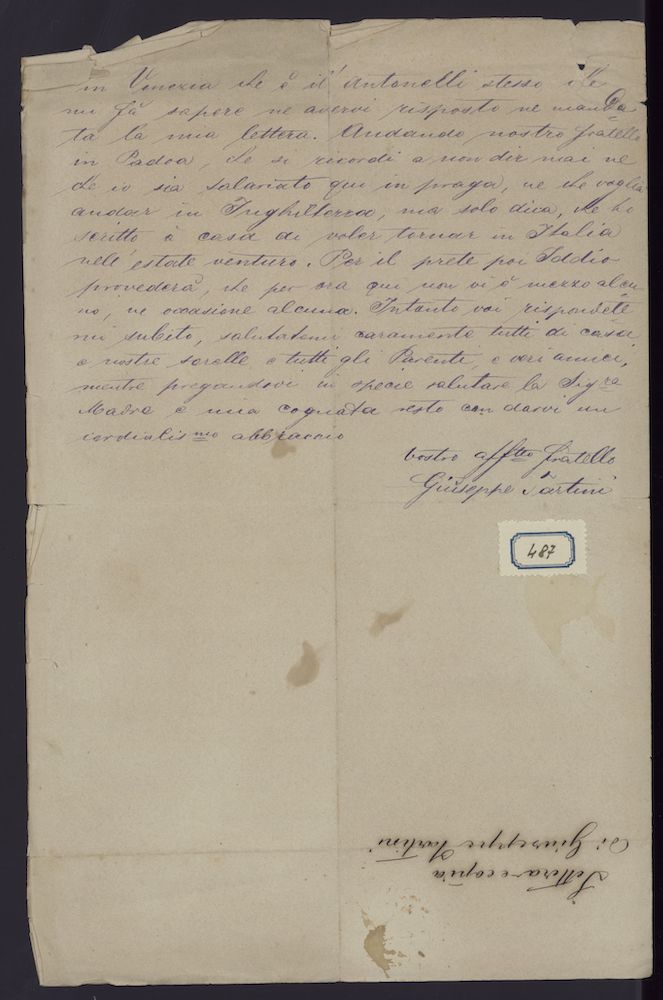 in Venezia che è il Antonelli stesso che
mi fà sapere ne avervi risposto ne manda
ta la mia lettera. Andando nostro fratello
in Padoa, che si ricordi a non dir mai ne
che io sia salariato qui in praga, ne che voglia
andar in Inghilterra, ma solo dica, che ho
scritto à casa di voler tornar in Italia
nell' estate venturo. Per il prete poi Iddio
provederà, che per ora qui non vi è mezzo alcu
no, ne occasione alcuna. Intanto voi rispondete
mi subito, salutatemi caramente tutti di casa
e nostre sorelle e tutti gli Parenti, e veri amici,
mentre pregandovi in specie salutare la Sig.ra
Madre e mia cognata resto con darvi un
cordialismo abbraccio
vostro afftto fratello
Giuseppe Tartini
487
Lettera e copia
di Giuseppe Tartini